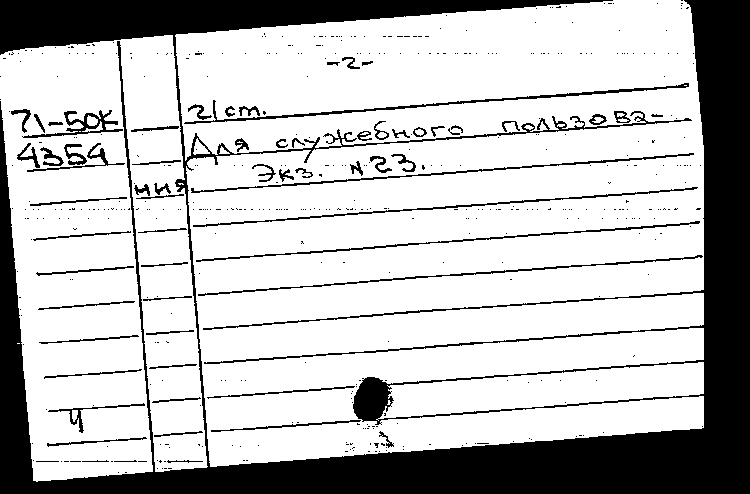 -2-
71-50К 2/ст.
4354 Для служебного пользова-
ния. Экз. № 23.
4